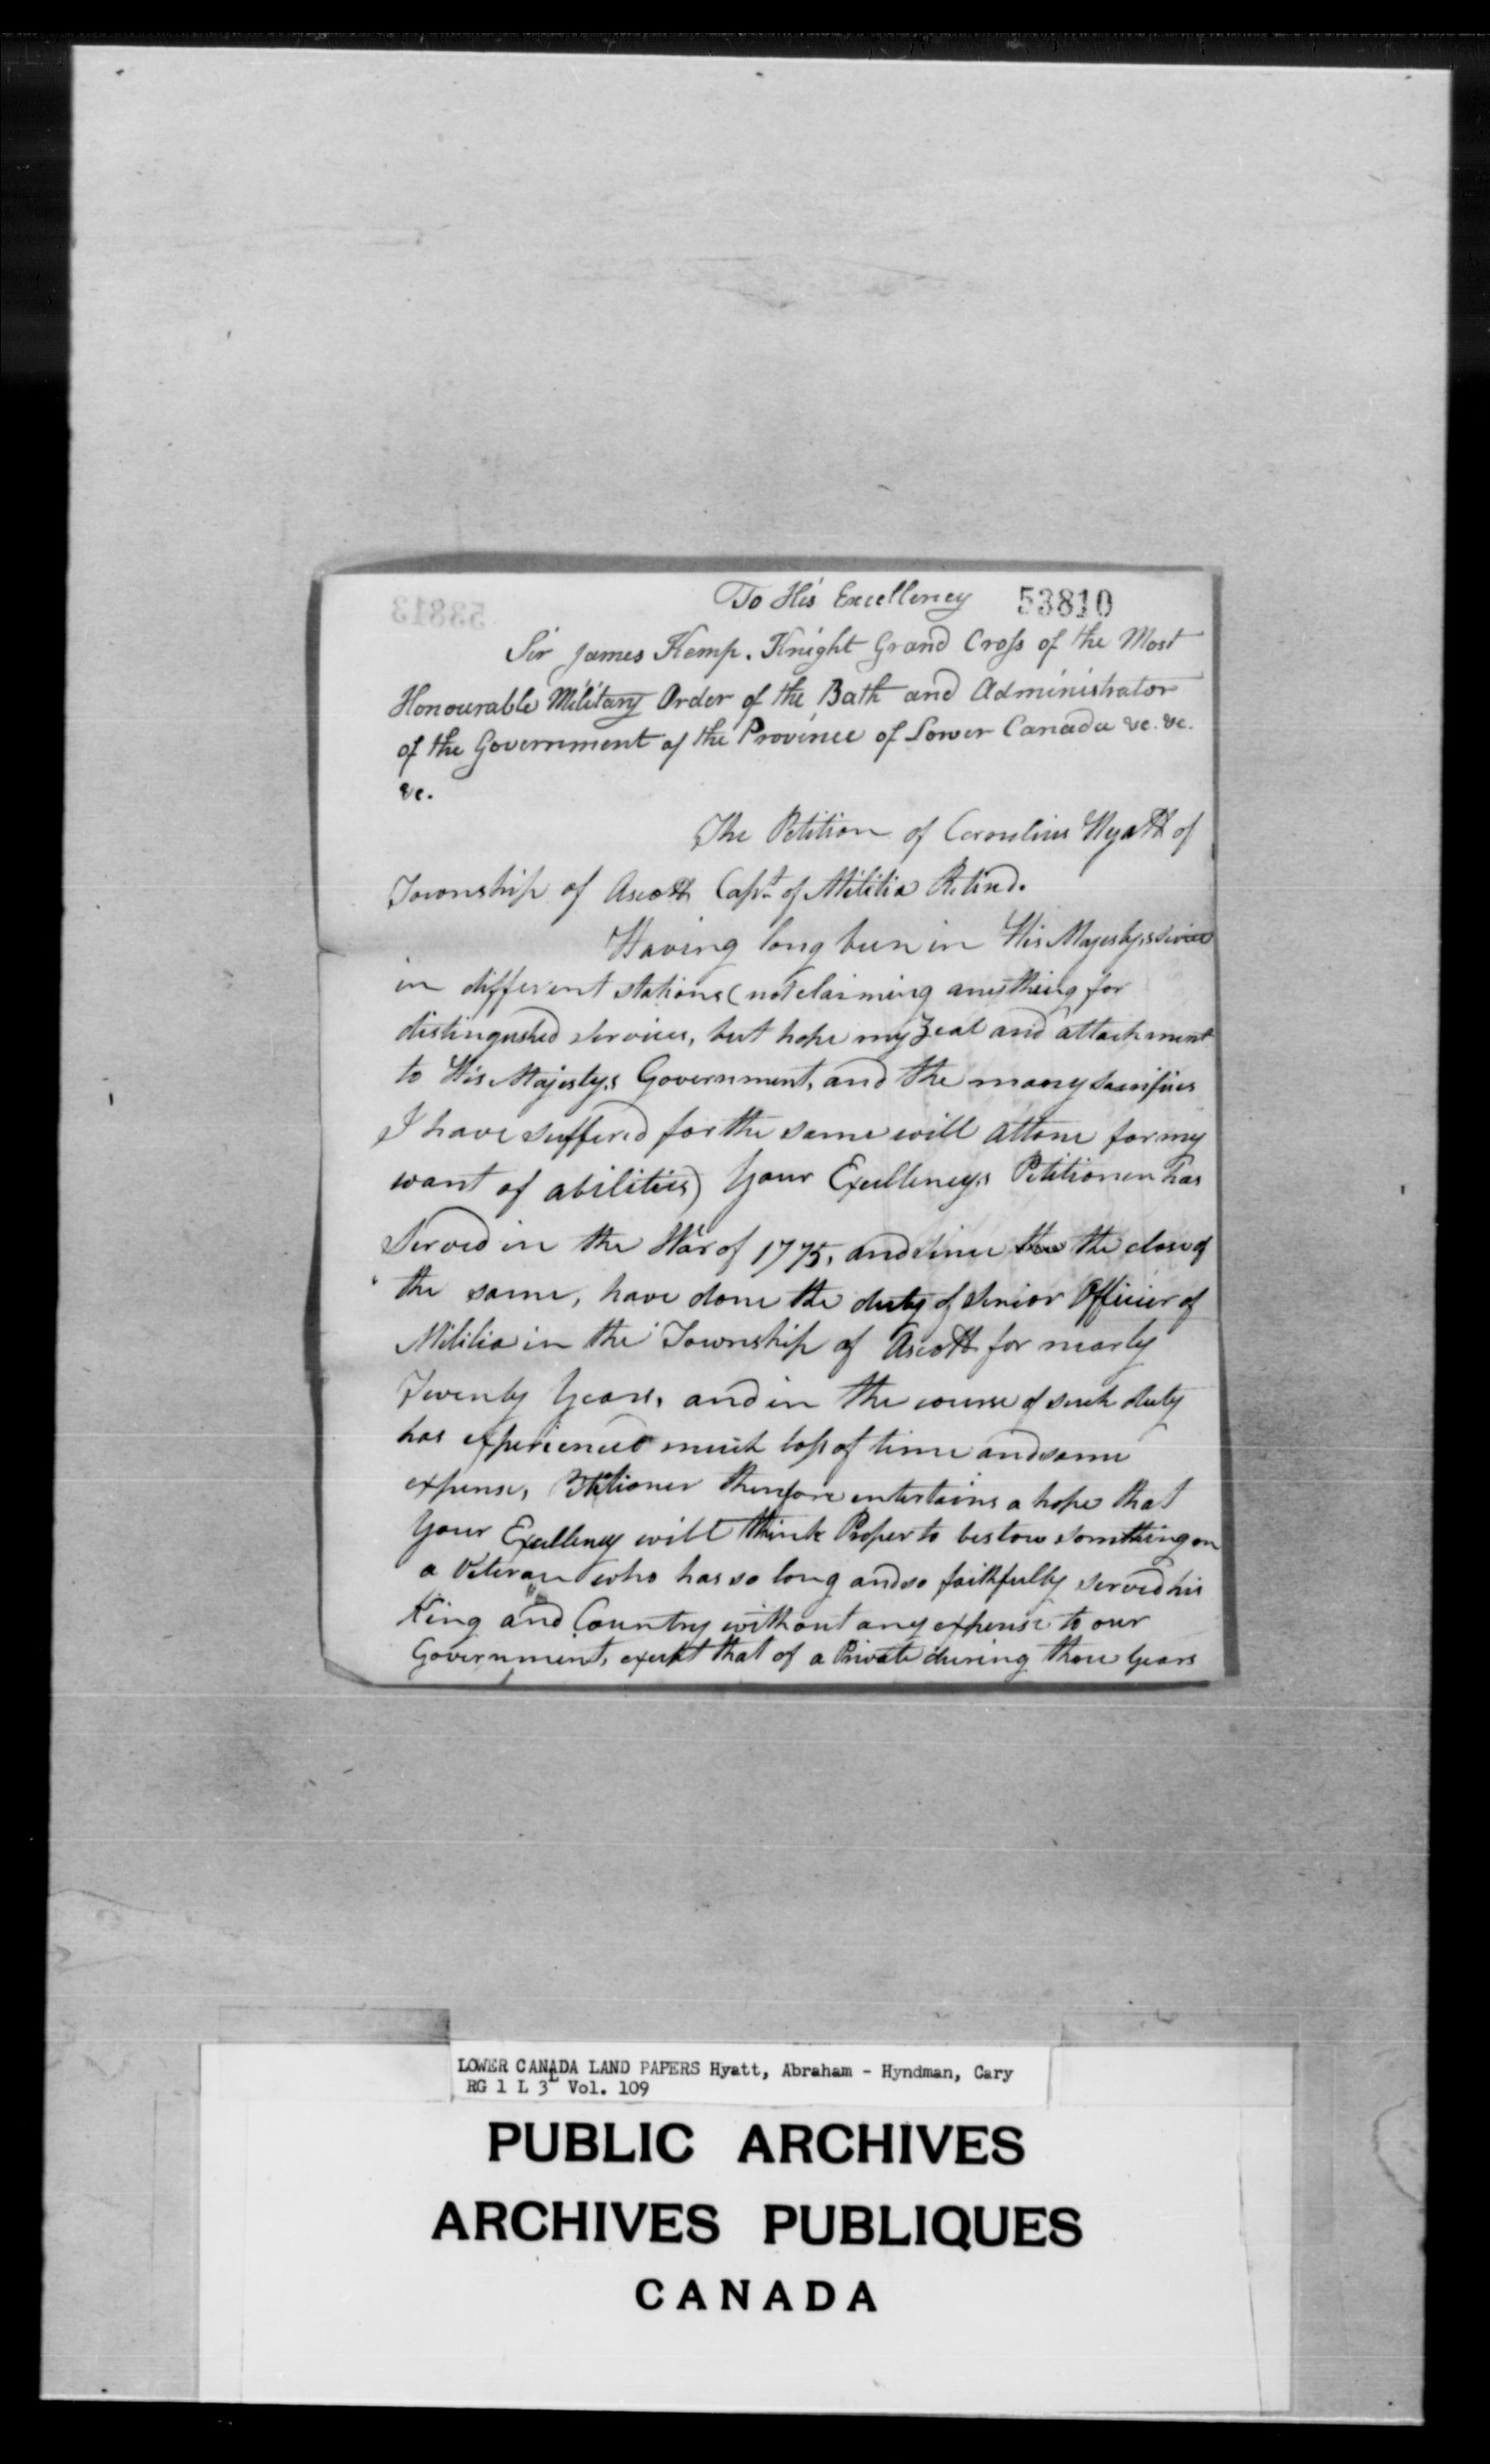 To His Excellency 53810
Sir James Kemp. Knight Grand Cross of the Most
Honourable Military Order of the Bath and Administrator
of the Government of the Province of Lower Canada &c. &c.
&c.
The Petition of Cornelius Hyatt of
Township of Ascott Capt. of Militia Retired.
Having long been in His Majesty,s service
in different stations (not claiming anything for
distingushed services, but hope my Zeal and attachment
to His Majesty,s Government, and the many sacrifices
I have suffered for the same will attone for my
want of abilities) Your Excellency,s Petitioner has
Served in the War of 1775, and since the the close of
the same, have done the duty of Senior Officier of
Militia in the Township of Ascott for nearly
Twenty Years, and in the course of such duty
has experienced much loss of time and some
expense, Petitioner therefore entertains a hope that
Your Excellency will think Proper to bestow something on
a Veteran who has so long and so faithfully served his
King and Country without any expense to our
Government, except that of a Private during three Years
LOWER CANADA LAND PAPERS Hyatt, Abraham - Hyndman, Cary
RG 1 L 3L Vol. 109
PUBLIC ARCHIVES
ARCHIVES PUBLIQUES
CANADA